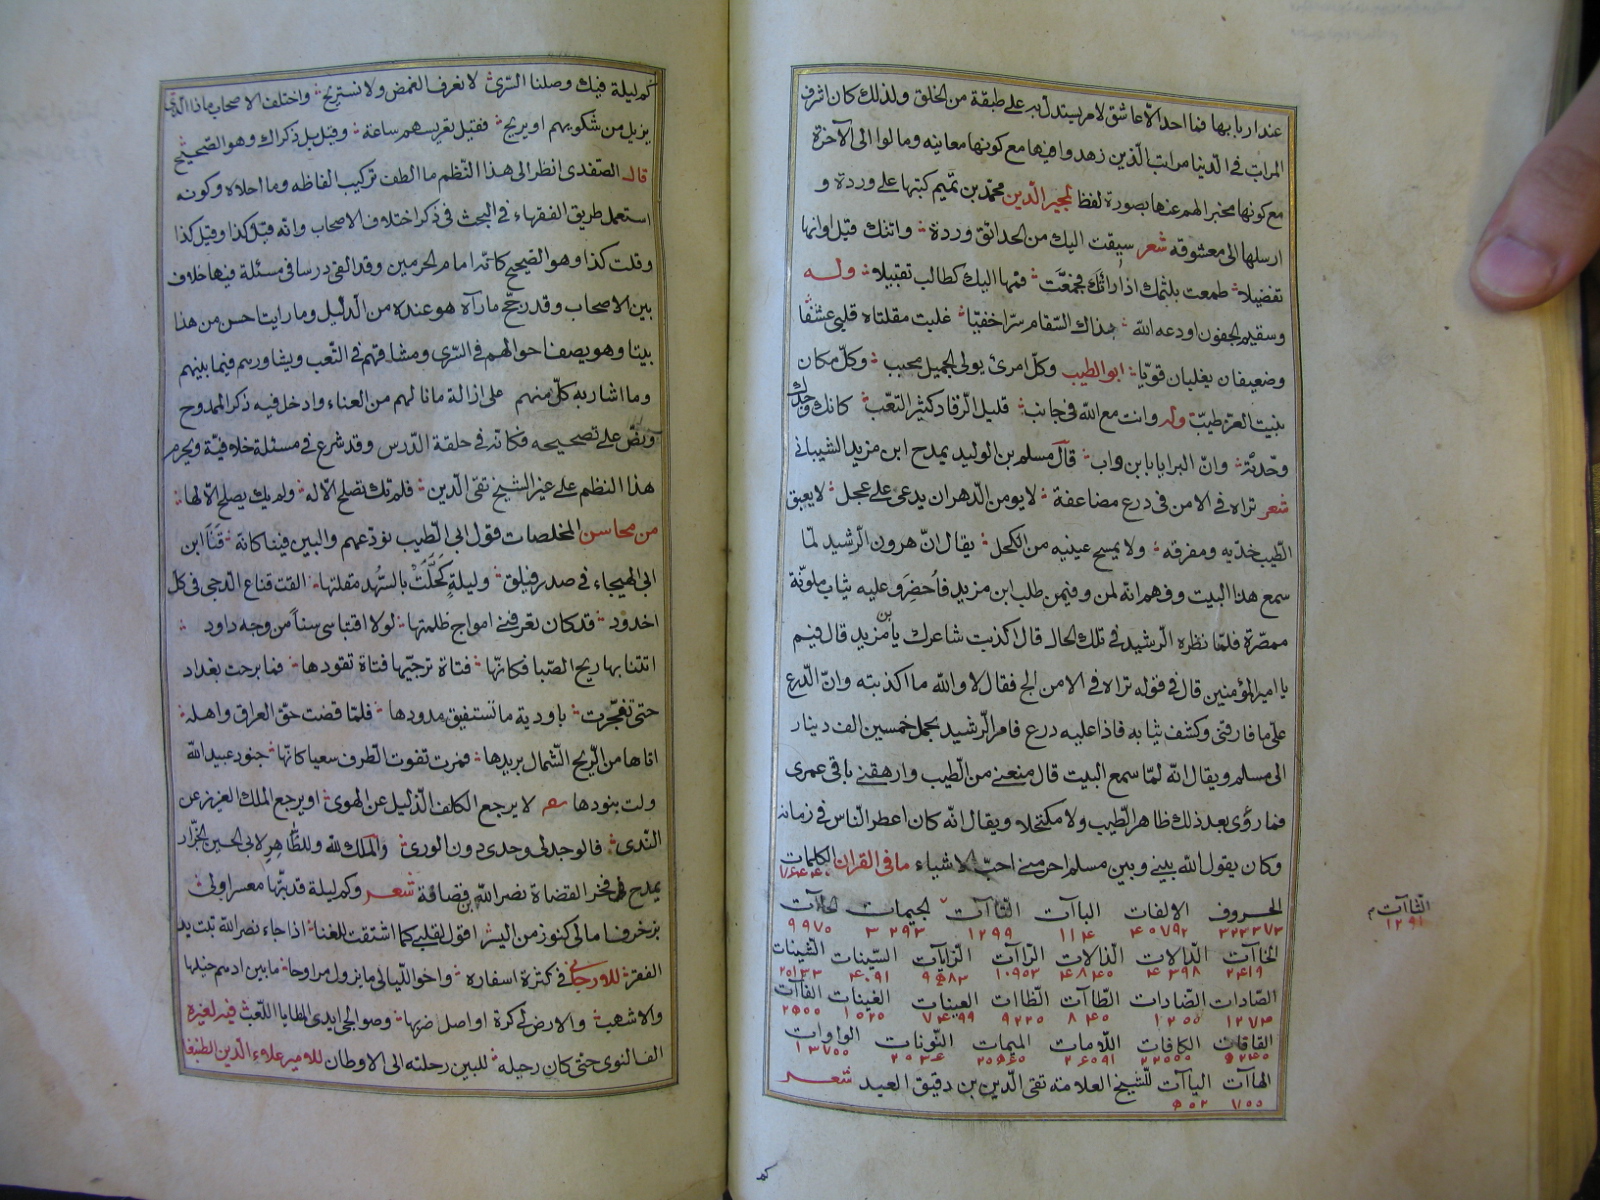 عند اربابها فما احد الا عاشق لامر يستدل به على طبقة من الخلق ولذلك كان اشرف
المراتب فى الدنيا مراتب الذين زهدوا فيها مع كونها معاينه ومالوا الى الآخرة
مع كونها مخبر الهم عنها بصورة لفظ لمجير الدين محمد بن تميم كتبها على وردة و
ارسلها الى معشوقه شعر سيقت اليك من الحدائق وردة واتتك قبل اوانها
تفضيلا طمعت بلثمك اذ راتك فجمعت فمها اليك كطالب تقبيلا وله
وسقيم الجفون اودعه الله بذاك السقام سرا خفيا غلبت مقلتاه قلبى عشقا
وضعيفان يغلبان قويا ابو الطيب وكل امرئ يولى الجميل محبب وكل مكان
ينبت العز طيب وله وانت مع الله فى جانب قليل الرقاد كثير التعب كانك وحدك
وحدته وان البرايا بابن واب قال مسلم بن الوليد يمدح ابن مزيد الشيبانى
شعر تراه فى الامن فى درع مضاعفة لا يومن الدهر ان يدعى على عجل لا يعبق
الطيب خديه ومفرقه ولا يمسح عينيه من الكحل يقال ان هرون الرشيد لما
سمع هذا البيت وفهم انه لمن وفيمن طلب ابن مزيد فاحضر وعليه ثياب ملونة
ممصرة فلما نظره الرشيد فى تلك الحال قال اكذبت شاعرك يا بن مزيد قال فيم
يا امير المؤمنين قال فى قوله تراه فى الامن الخ فقال لا والله ما اكذبته وان الدرع
على ما فارقنى وكشف ثيابه فاذا عليه درع فامر الرشيد بحمل خمسين الف دينار
الى مسلم ويقال انه لما سمع البيت قال منعنى من الطيب وارهقنى باقى عمرى
فما رؤى بعد ذلك ظاهر الطيب ولا مكتحلا ويقال انه كان اعطر الناس فى زمانه
وكان يقول الله بينى وبين مسلم احرمنى احب الاشياء ما فى القران الكلمات
الحروف الالفات الباآت التاآت الجيمات الحاآت
٣٢٣٣٧٣ ٤٠٧٩٢ ١١٤ ١٢٩٩ ٣٢٩٣ ٩٩٧٥
الثاآت م
١٢٩١
الخاآت الدالات الذالات الراآت الزايات السينات الشينات
٢٤١٩ ٤٣٩٨ ٤٨٤٥ ١٠٩٥٣ ٤٠٩١
الصادات الضادات الطاآت الظاات العينات الغينات الفاآت
١٢٧٤ ١٢٥٥ ٨٤٥ ٩٢٢٥ ٧٤٩٩
القافات الكافات اللامات الميمات النونات الواوات
١٣٧٥٥
الهاآت الياآت للشيخ العلامة تقى الدين بن دقيق العيد شعر
٧٥٥ ٥٥٢
كم
كم ليلة فيك وصلنا السرى لا نعرف الغمض ولا نستريح واختلف الاصحاب ماذا الذى
يزيل من شكويهم او يريح فقيل تعريسهم ساعة وقيل بل ذكراك وهو الصحيح
قال الصفدى انظر الى هذا النظم ما الطف تركيب الفاظه وما احلاه وكونه
استعمل طريق الفقهاء فى البحث فى ذكر اختلاف الاصحاب وانه قيل كذا وقيل كذا
وقلت كذا وهو الصحيح كانه امام الحرمين وقد القى درسا فى مسئلة فيها خلاف
بين الاصحاب وقد رجح ما رآه هو عنده من الدليل وما رايت احسن من هذا
بيتا وهو يصف احوالهم فى السرى ومشاقهم فى التعب ويشاورهم فيما بينهم
وما اشار به كل منهم على ازالة ما نالهم من العناء وادخل فيه ذكر الممدوح
ونص على تصحيحه فكانه فى حلقة الدرس وقد شرع فى مسئلة خلافية ويحرم
هذا النظم على غير الشيخ تقى الدين فلم تك تصلح الا له ولم يك يصلح الا لها
من محاسن المخلصات قول ابى الطيب نودعهم والبين فينا كانه قنا ابن
ابى الهيجاء فى صدر فيلق وليلة كحلت بالسهد مقلتها القت قناع الدجى فى كل
اخدود قد كان يغرقنى امواج ظلمتها لولا اقتباسى سنا من وجه داود
اتتنا بها ريح الصبا فكانها فتاة ترجيها فتاة تقودها فما برحت بغداد
حتى تفجرت باودية ما تستفيق مدودها فلما قضت حق العراق واهله
اتاها من الريح الشمال بريدها فمرت تفوت الطرف سعيا كانها جنود عبيد الله
ولت بنودها لا يرجع الكلف الذليل عن الهوى او يرجع الملك العزيز عن
الندى فالوجد لى وحدى دون الورى والملك لله وللظاهر لابى الحسين الجزار
يمدح فخر القضاة نصر الله بن قصاقة شعر وكم ليلة قد بتها معسرا ولى
بزخرف امالى كنوز من اليسر اقول لقلبى كلما اشتقت للغنا اذا جاء نصر الله تبت يد
الفقر للارجانى فى كثرة اسفاره واخو الليالى ما يزول مراوحا ما بين ادهم خيلها
والاشهب والارض لى كرة اواصل ضربها وصوالجى ايدى المطايا اللغب فيه لغيره
الف النوى حتى كان رحيله للبين رحلته الى الاوطان للامير علاء الدين الطنبغا